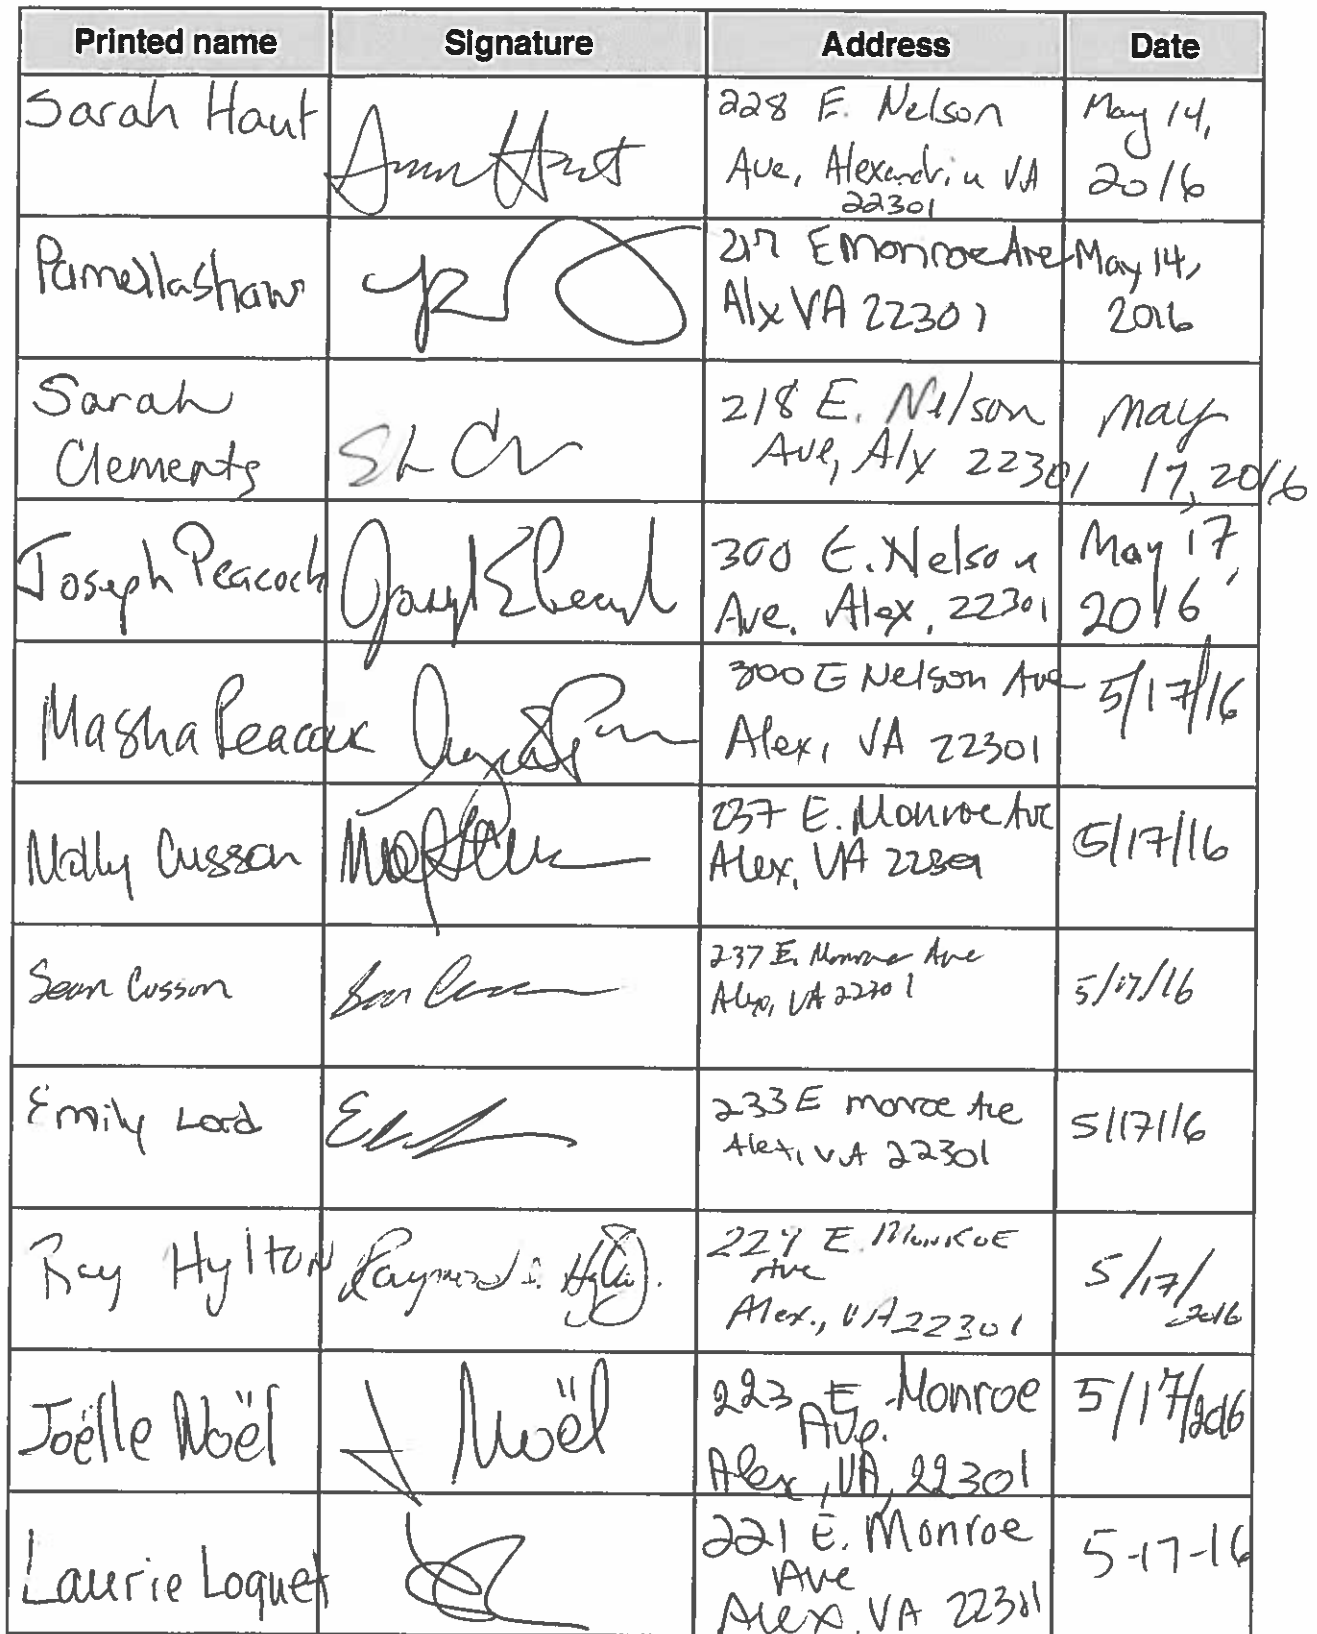 Printed name Signature Address Date
Sarah Haut
228 E. Nelson
Ave, Alexandria VA
22301
May 14,
2016
Pamella Shaw
217 E Monroe Ave
Alx VA 22301
May 14,
2016
Sarah
Clements
218 E. Nelson
Ave, Alx 22301
May
17, 2016
Joseph Peacock
300 E. Nelson
Ave. Alex, 22301
May 17,
2016
Masha Peacock
300 E Nelson Ave
Alex, VA 22301
5/17/16
Molly Cusson
237 E. Monroe Ave
Alex, VA 22301
5/17/16
Sean Cusson
237 E. Monroe Ave
Alex, VA 22301
5/17/16
Emily Lord
233 E monroe Ave
Alex, VA 22301
5/17/16
Ray Hylton
E. Monroe
Ave
Alex., VA 22301
5/17/
2016
Joëlle Noël
Noël
223 E. Monroe
Ave.
Alex, VA, 22301
5/17/2016
Laurie Loquet
221 E. Monroe
Ave
Alex, VA 22301
5-17-16